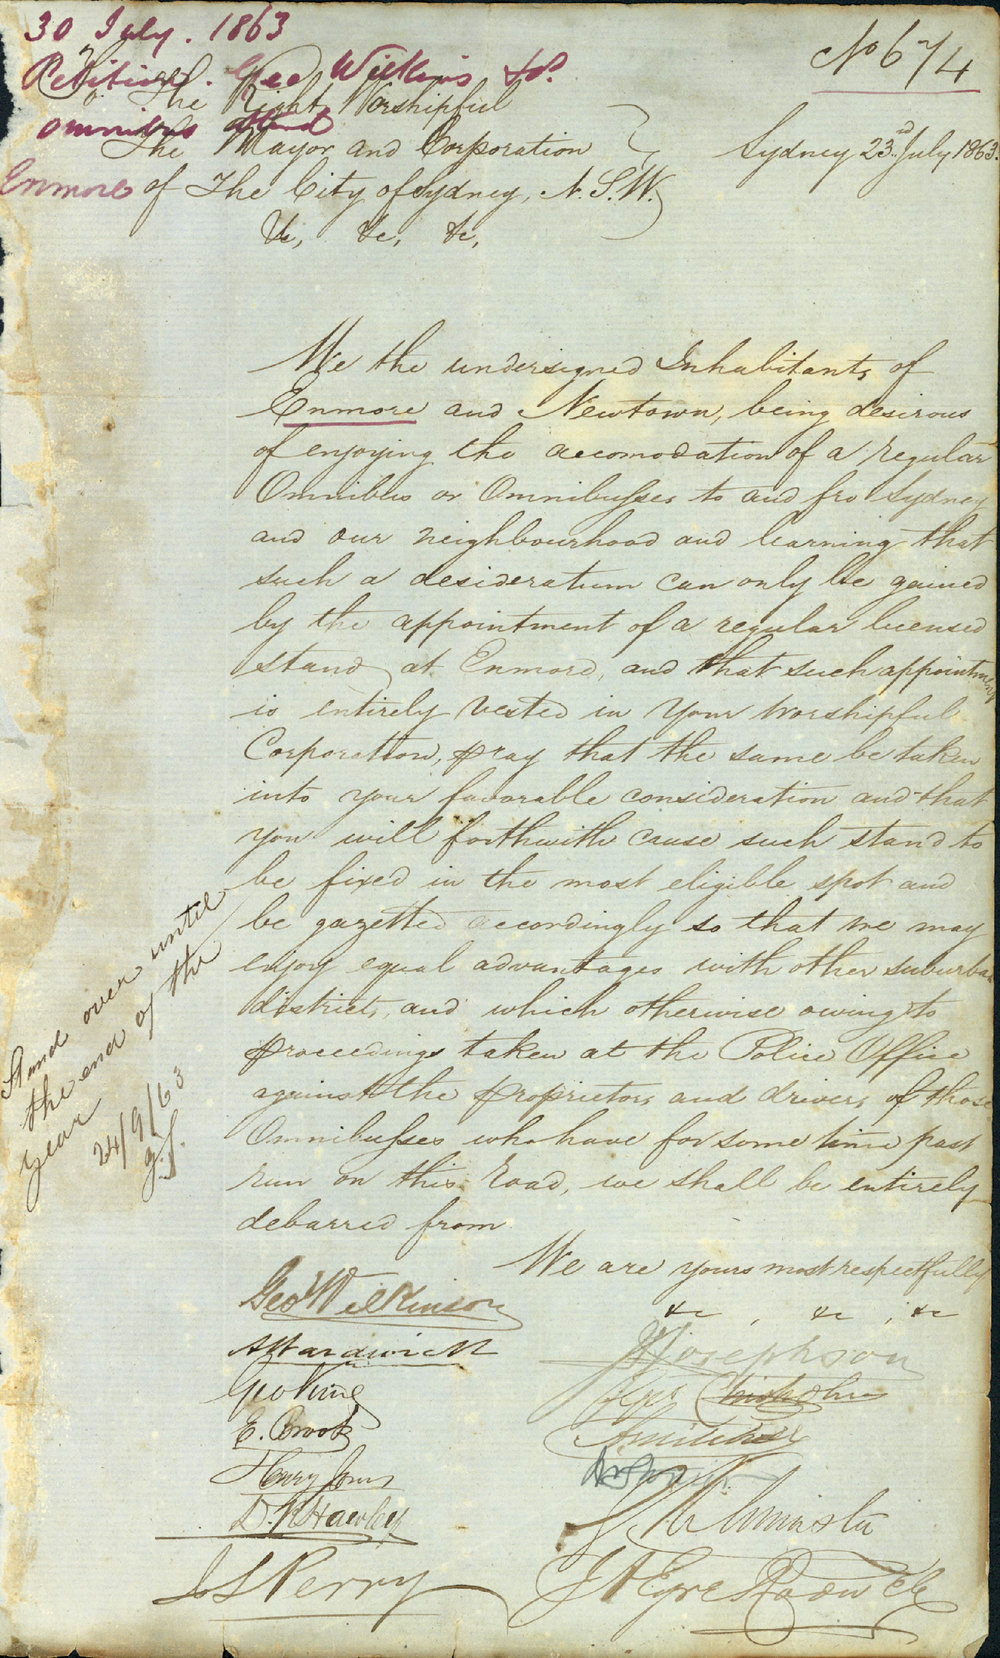 30 July. 1863
No 674
Petition. Geo Wilkins &c
Omnibus Stand
Enmore
To The Right Worshipful
The Mayor and Corporation
of The City of Sydney, N.S.W.
&c, &c, &c,
Sydney 23rd July 1863.
We the undersigned Inhabitants of
Enmore and Newtown, being desirous
of enjoying the accomodation of a regular
Omnibus or Omnibusses to and fro Sydney
and our neighbourhood and learning that
such a desideratum can only be gained
by the appointment of a regular licensed
stand at Enmore, and that such appointment
is entirely vested in Your Worshipful
Corporation, pray that the same be taken
into your favorable consideration and that
you will forthwith cause such stand to
be fixed in the most eligible spot and
be gazetted accordingly so that we may
enjoy equal advantages with other suburban
districts, and which otherwise owing to
proceedings taken at the Police Office
against the proprietors and drivers of those
Omnibusses who have for some time past
run on this Road, we shall be entirely
debarred from
We are yours most respectfully
&c, &c, &c
Stand over until
the end of the
year
24/9/63
Geo Wilkinson
A Hardwick
Geo King
E. Brook
Henry Jones
D. R Hawley
J S Perry
Josephson
Chisholm
J H Eyre